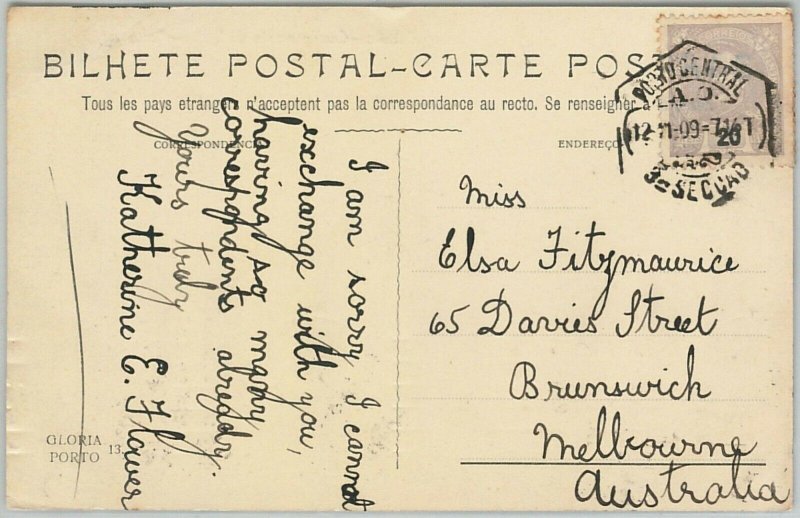 BILHETE POSTAL-CARTE POS
Tous les pays etrangers n'acceptent pas la correspondance au recto. Se renseigner à la
CORRESPONDENCIA
ENDEREÇO
CORREIO
PORTO CENTRAL
12-11-09=7
20
3ª SECCÃO
I am sorry I cannot
exchange with you,
having so many
correspondents already.
Yours truly
Katherine E. Flower
Miss
Elsa Fitzmaurice
65 Davies Street
Brunswich
Melbourne
Australia
GLORIA 13.
PORTO